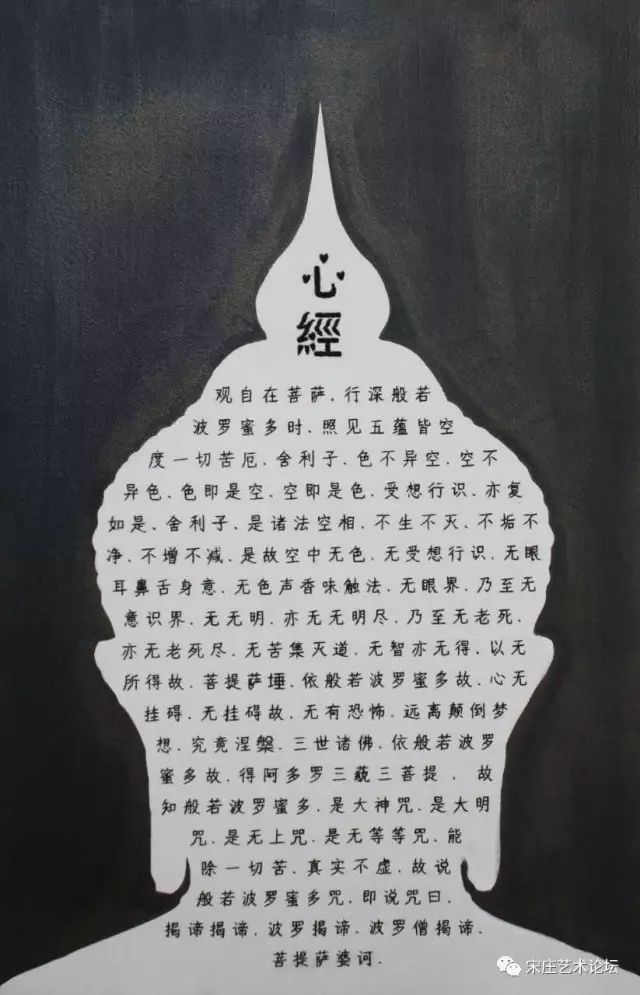 心
經
观自在菩萨.行深般若
波罗蜜多时.照见五蕴皆空
度一切苦厄.舍利子.色不异空.空不
异色.色即是空.空即是色.受想行识.亦复
如是.舍利子.是诸法空相.不生不灭.不垢不
净.不增不减.是故空中无色.无受想行识.无眼
耳鼻舌身意.无色声香味触法.无眼界.乃至无
意识界.无无明.亦无无明尽.乃至无老死.
亦无老死尽.无苦集灭道.无智亦无得.以无
所得故.菩提萨埵.依般若波罗蜜多故.心无
挂碍.无挂碍故.无有恐怖.远离颠倒梦
想.究竟涅槃.三世诸佛.依般若波罗
蜜多故.得阿多罗三藐三菩提.故
知般若波罗蜜多.是大神咒.是大明
咒.是无上咒.是无等等咒.能
除一切苦.真实不虚.故说
般若波罗蜜多咒.即说咒曰.
揭谛揭谛.波罗揭谛.波罗僧揭谛.
菩提萨婆诃.
宋庄艺术论坛